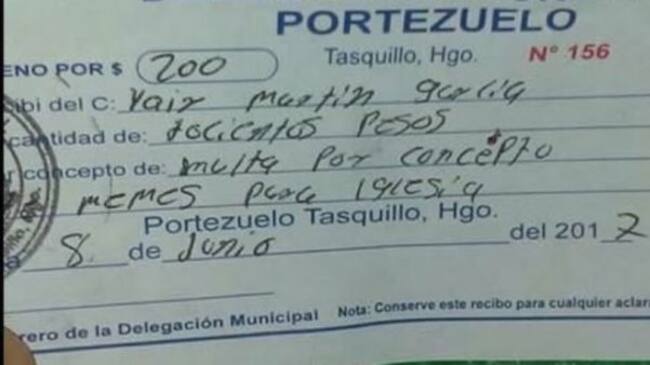 PORTEZUELO
Tasquillo, Hgo. N° 156
ENO POR $ 200
ibi del C: Yair Martin garcia
cantidad de: docientos pesos
r concepto de: multa por concepto
MEMES para IGlesia
Portezuelo Tasquillo, Hgo.
a 8 de Junio del 2017
rero de la Delegación Municipal Nota: Conserve este recibo para cualquier aclar